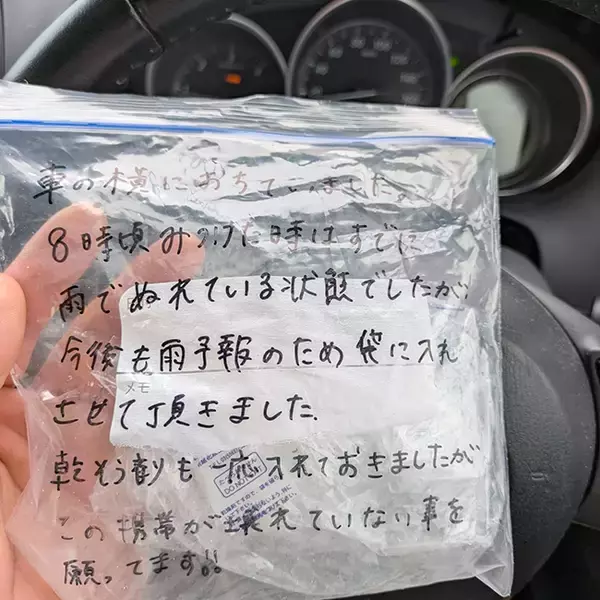 車の横におちていました。
8時頃みつけた時はすでに
雨でぬれている状態でしたが
今後も雨予報のため袋に入れ
メモ
させて頂きました.
乾そう剤も一応入れておきましたが
DO NOT EAT
この携帯が壊れていない事を
願ってます!!